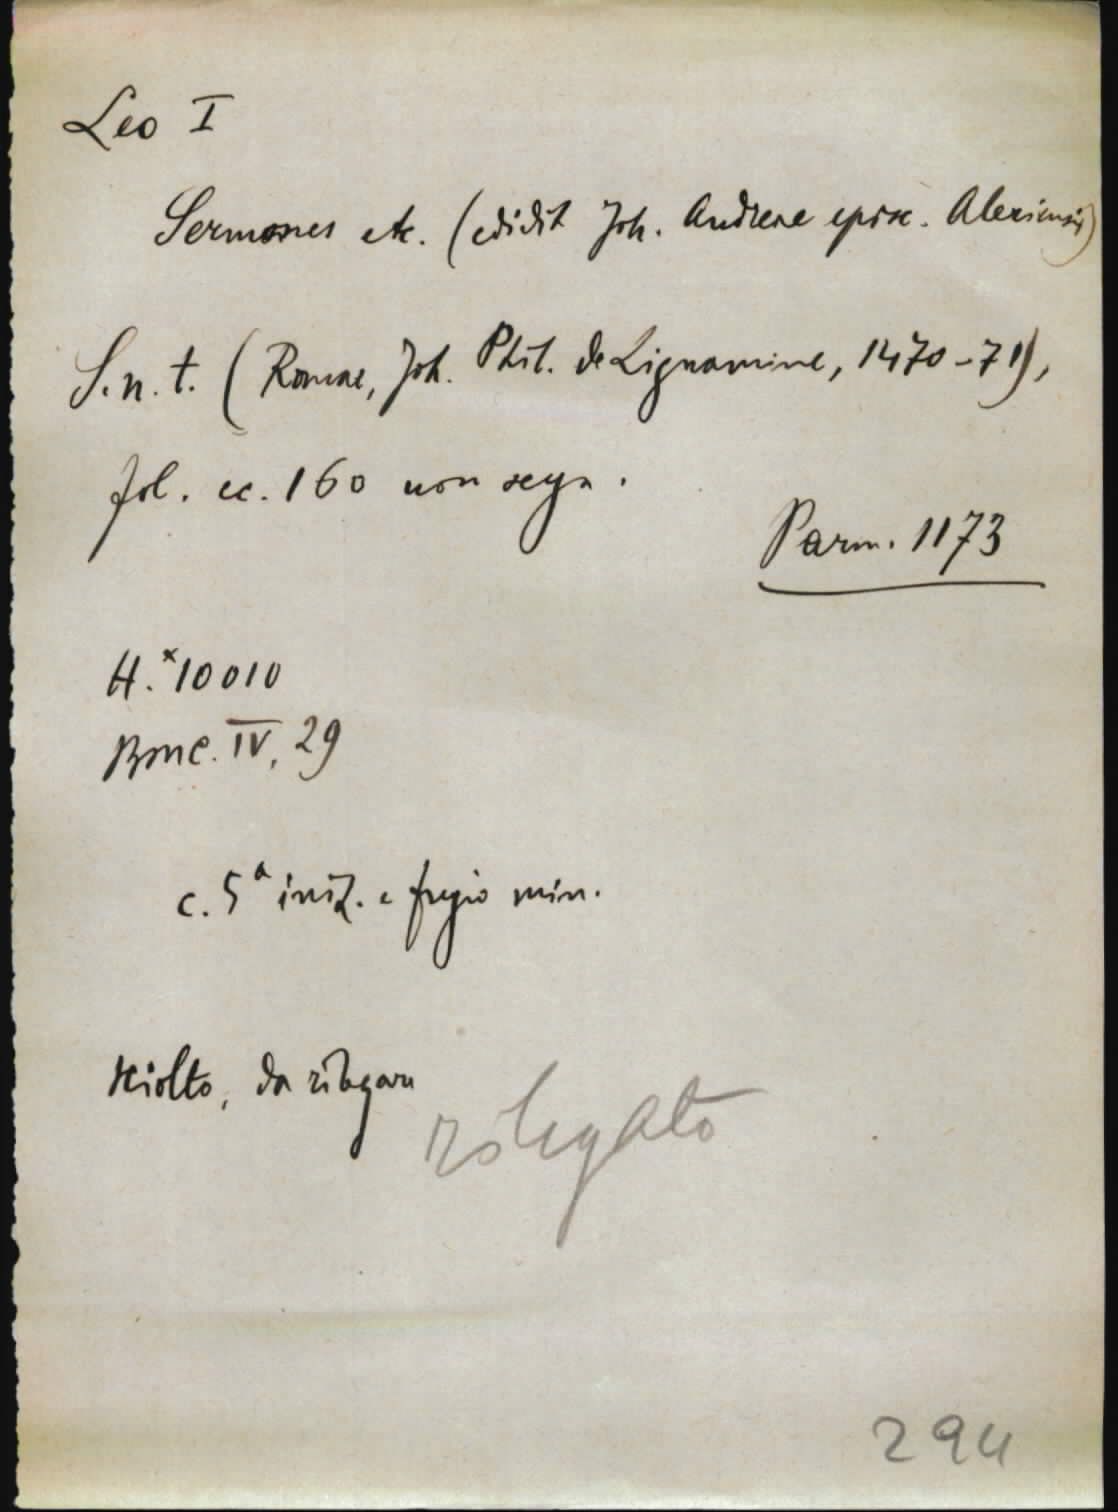 Leo I
Sermones etc. (edidit Joh. Andreae episc. Aleriensis)
S. n. t. (Romae, Joh. Phil. de Lignamine, 1470-71),
fol. cc. 160 non segn.
Parm. 1173
H.*10010
BMC. IV, 29
c. 5ª iniz. e fregio min.
Sciolto, da rilegare
rilegato
294